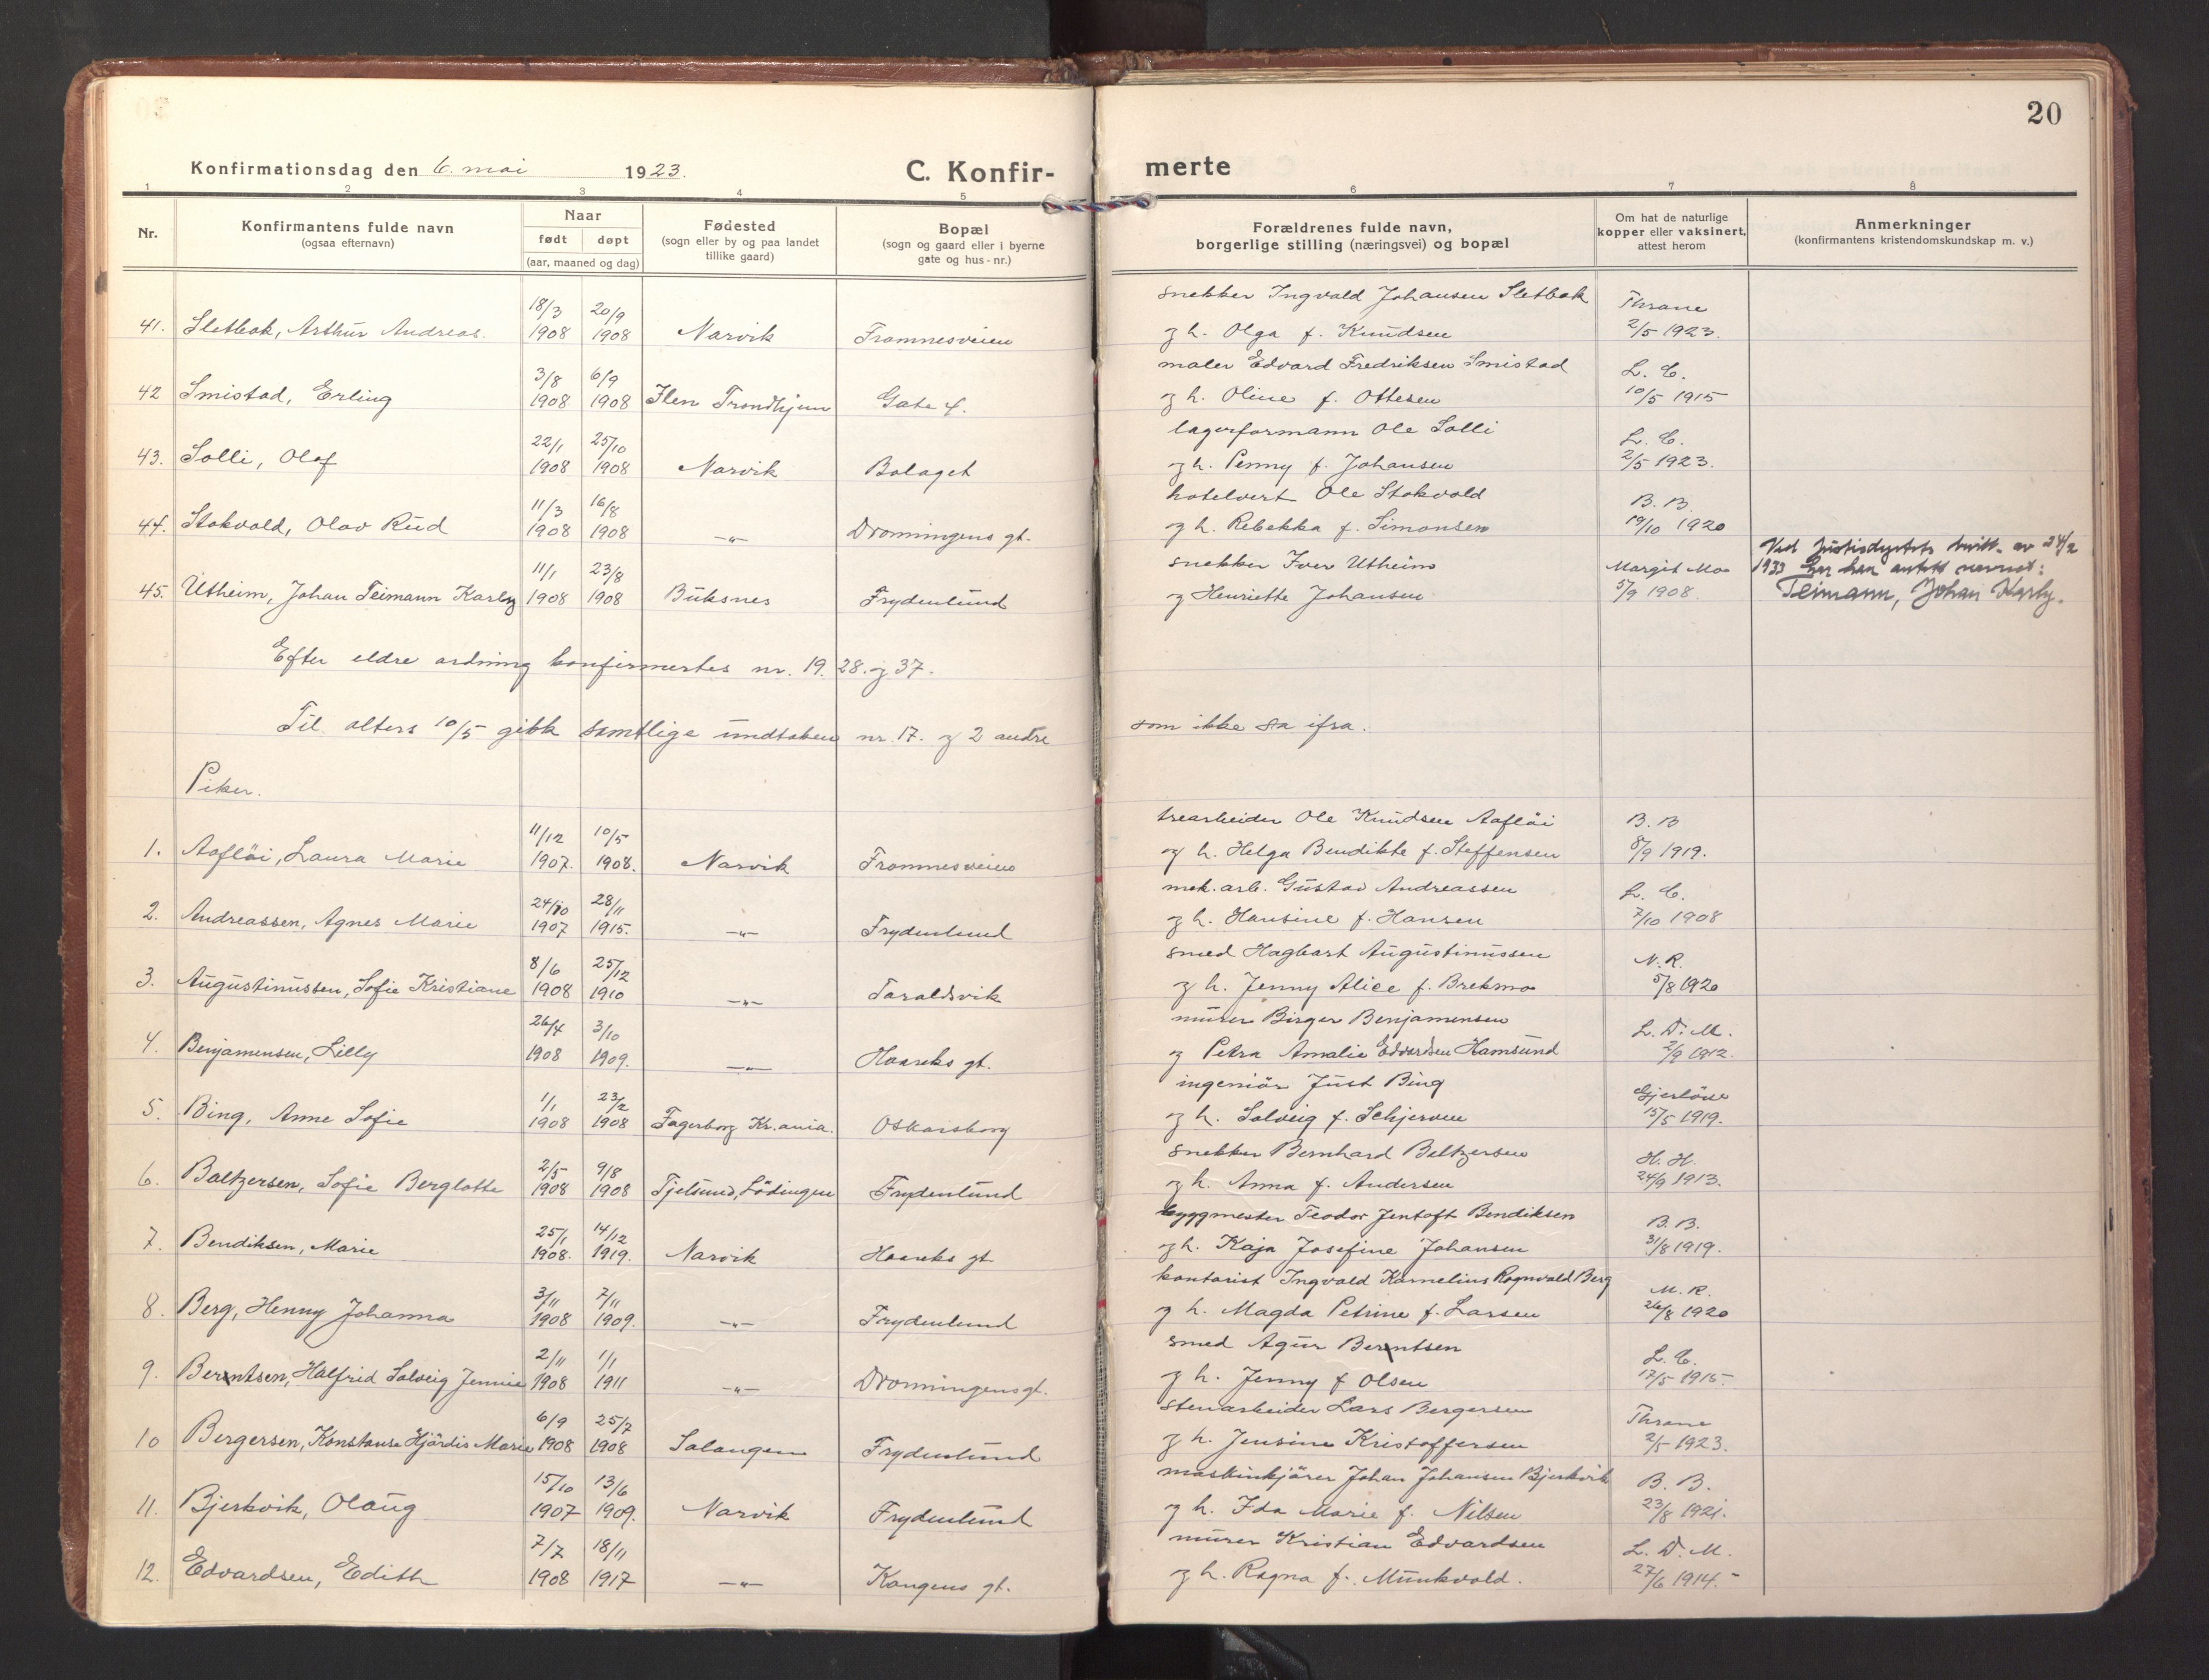 20
Konfirmationsdag den 6. mai 1923.
C. Konfir-
merte
1 2 3 4 5 6 7 8
Nr.
Konfirmantens fulde navn
(ogsaa efternavn)
Naar
født døpt
(aar, maaned og dag)
Fødested
(sogn eller by og paa landet
tillike gaard)
Bopæl
(sogn og gaard eller i byerne
gate og hus-nr.)
Forældrenes fulde navn,
borgerlige stilling (næringsvei) og bopæl
Om hat de naturlige
kopper eller vaksinert,
attest herom
Anmerkninger
(konfirmantens kristendomskundskap m. v.)
18/3 20/9 snekker Ingvald Johansen Sletbak Thrane
41. Sletbak, Arthur Andreas. 1908 1908 Narvik Framnesveien og h. Olga f. Knudsen 2/5 1923.
3/8 6/9 maler Edvard Fredriksen Smistad L. C.
42 Smistad, Erling 1908 1908 Ilen Trondhjem Gate 4. og h. Oline f. Ottesen 10/5 1915
22/1 25/10 lagerformann Ole Solli L. C.
43. Solli, Olaf 1908 1908 Narvik Bolaget og h. Penny f. Johansen 2/5 1923.
11/3 16/8 hotelvert Ole Stokvold B. B.
44. Stokvold, Olav Rud 1908 1908 —"— Dronningens gt. og h. Rebekka f. Simonsen 19/10 1920
11/1 23/8 snekker Iver Utheim Margit Moe Ved justisdeptets bevill. av 24/2
45. Utheim, Johan Teimann Karby 1908 1908 Buksnes Frydenlund og Henriette Johansen 5/9 1908. 1933 har han antatt navnet:
Teimann, Johan Karby.
Efter eldre ordning konfirmertes nr. 19. 28. og 37.
Til alters 10/5 gikk samtlige undtaken nr. 17. og 2 andre som ikke sa ifra.
Piker.
11/12 10/5 trearbeider Ole Knudsen Aaflöi B. B
1. Aaflöi, Laura Marie 1907. 1908. Narvik Framnesveien og h. Helga Bendikte f. Steffensen 8/9 1919.
24/10 28/11 mek. arb. Gustav Andreassen L. C.
2. Andreassen, Agnes Marie 1907 1915. —"— Frydenlund og h. Hansine f. Hansen 7/10 1908
8/6 25/12 smed Hagbart Augustinussen N. R.
3. Augustinussen, Sofie Kristiane 1908 1910 —"— Taraldsvik og h. Jenny Alice f. Brekmo 5/8 1920
26/4 3/10 murer Birger Benjamensen L. D. M.
4. Benjamensen, Lilly 1908 1909. —"— Haareks gt. og Petra Amalie Edvardsen Hamsund 2/9 1912.
1/1 23/2 ingeniör Just Bing Gjerlöse
5. Bing, Anne Sofie 1908 1908 Fagerborg Kr.ania. Oskarsborg og h. Solveig f. Schjerven 15/5 1919.
2/5 9/8 snekker Bernhard Baltzersen H. H.
6. Baltzersen, Sofie Berglotte 1908 1908 Tjelsund, Lödingen Frydenlund og h. Anna f. Andersen 24/9 1913.
25/1 14/12 byggmester Teodor Jentoft Bendiksen B. B.
7. Bendiksen, Marie 1908. 1919. Narvik Haareks gt. og h. Kaja Josefine Johansen 31/8 1919.
3/11 7/11 kontorist Ingvald Kornelius Ragnvald Berg M. R.
8. Berg, Henny Johanna 1908 1909. —"— Frydenlund og h. Magda Petrine f. Larsen 26/8 1920
2/11 1/1 smed Agur Berntsen L. C.
9. Berntsen, Halfrid Solveig Jennie 1908 1911 —"— Dronningens gt. og h. Jenny f Olsen 17/5 1915.
6/9 25/7 stenarbeider Lars Bergersen Thrane
10 Bergersen, Konstanse Hjördis Marie 1908 1908 Salangen Frydenlund og h. Jensine Kristoffersen 2/5 1923.
15/10 13/6 maskinkjörer Johan Johansen Bjerkvik B. B.
11. Bjerkvik, Olaug 1907 1909. Narvik Frydenlund og h. Ida Marie f. Nilsen 23/8 1921.
7/7 18/11 murer Kristian Edvardsen L. D. M.
12. Edvardsen, Edith 1908 1917 —"— Kongens gt. og h. Ragna f. Munkvold. 27/6 1914.